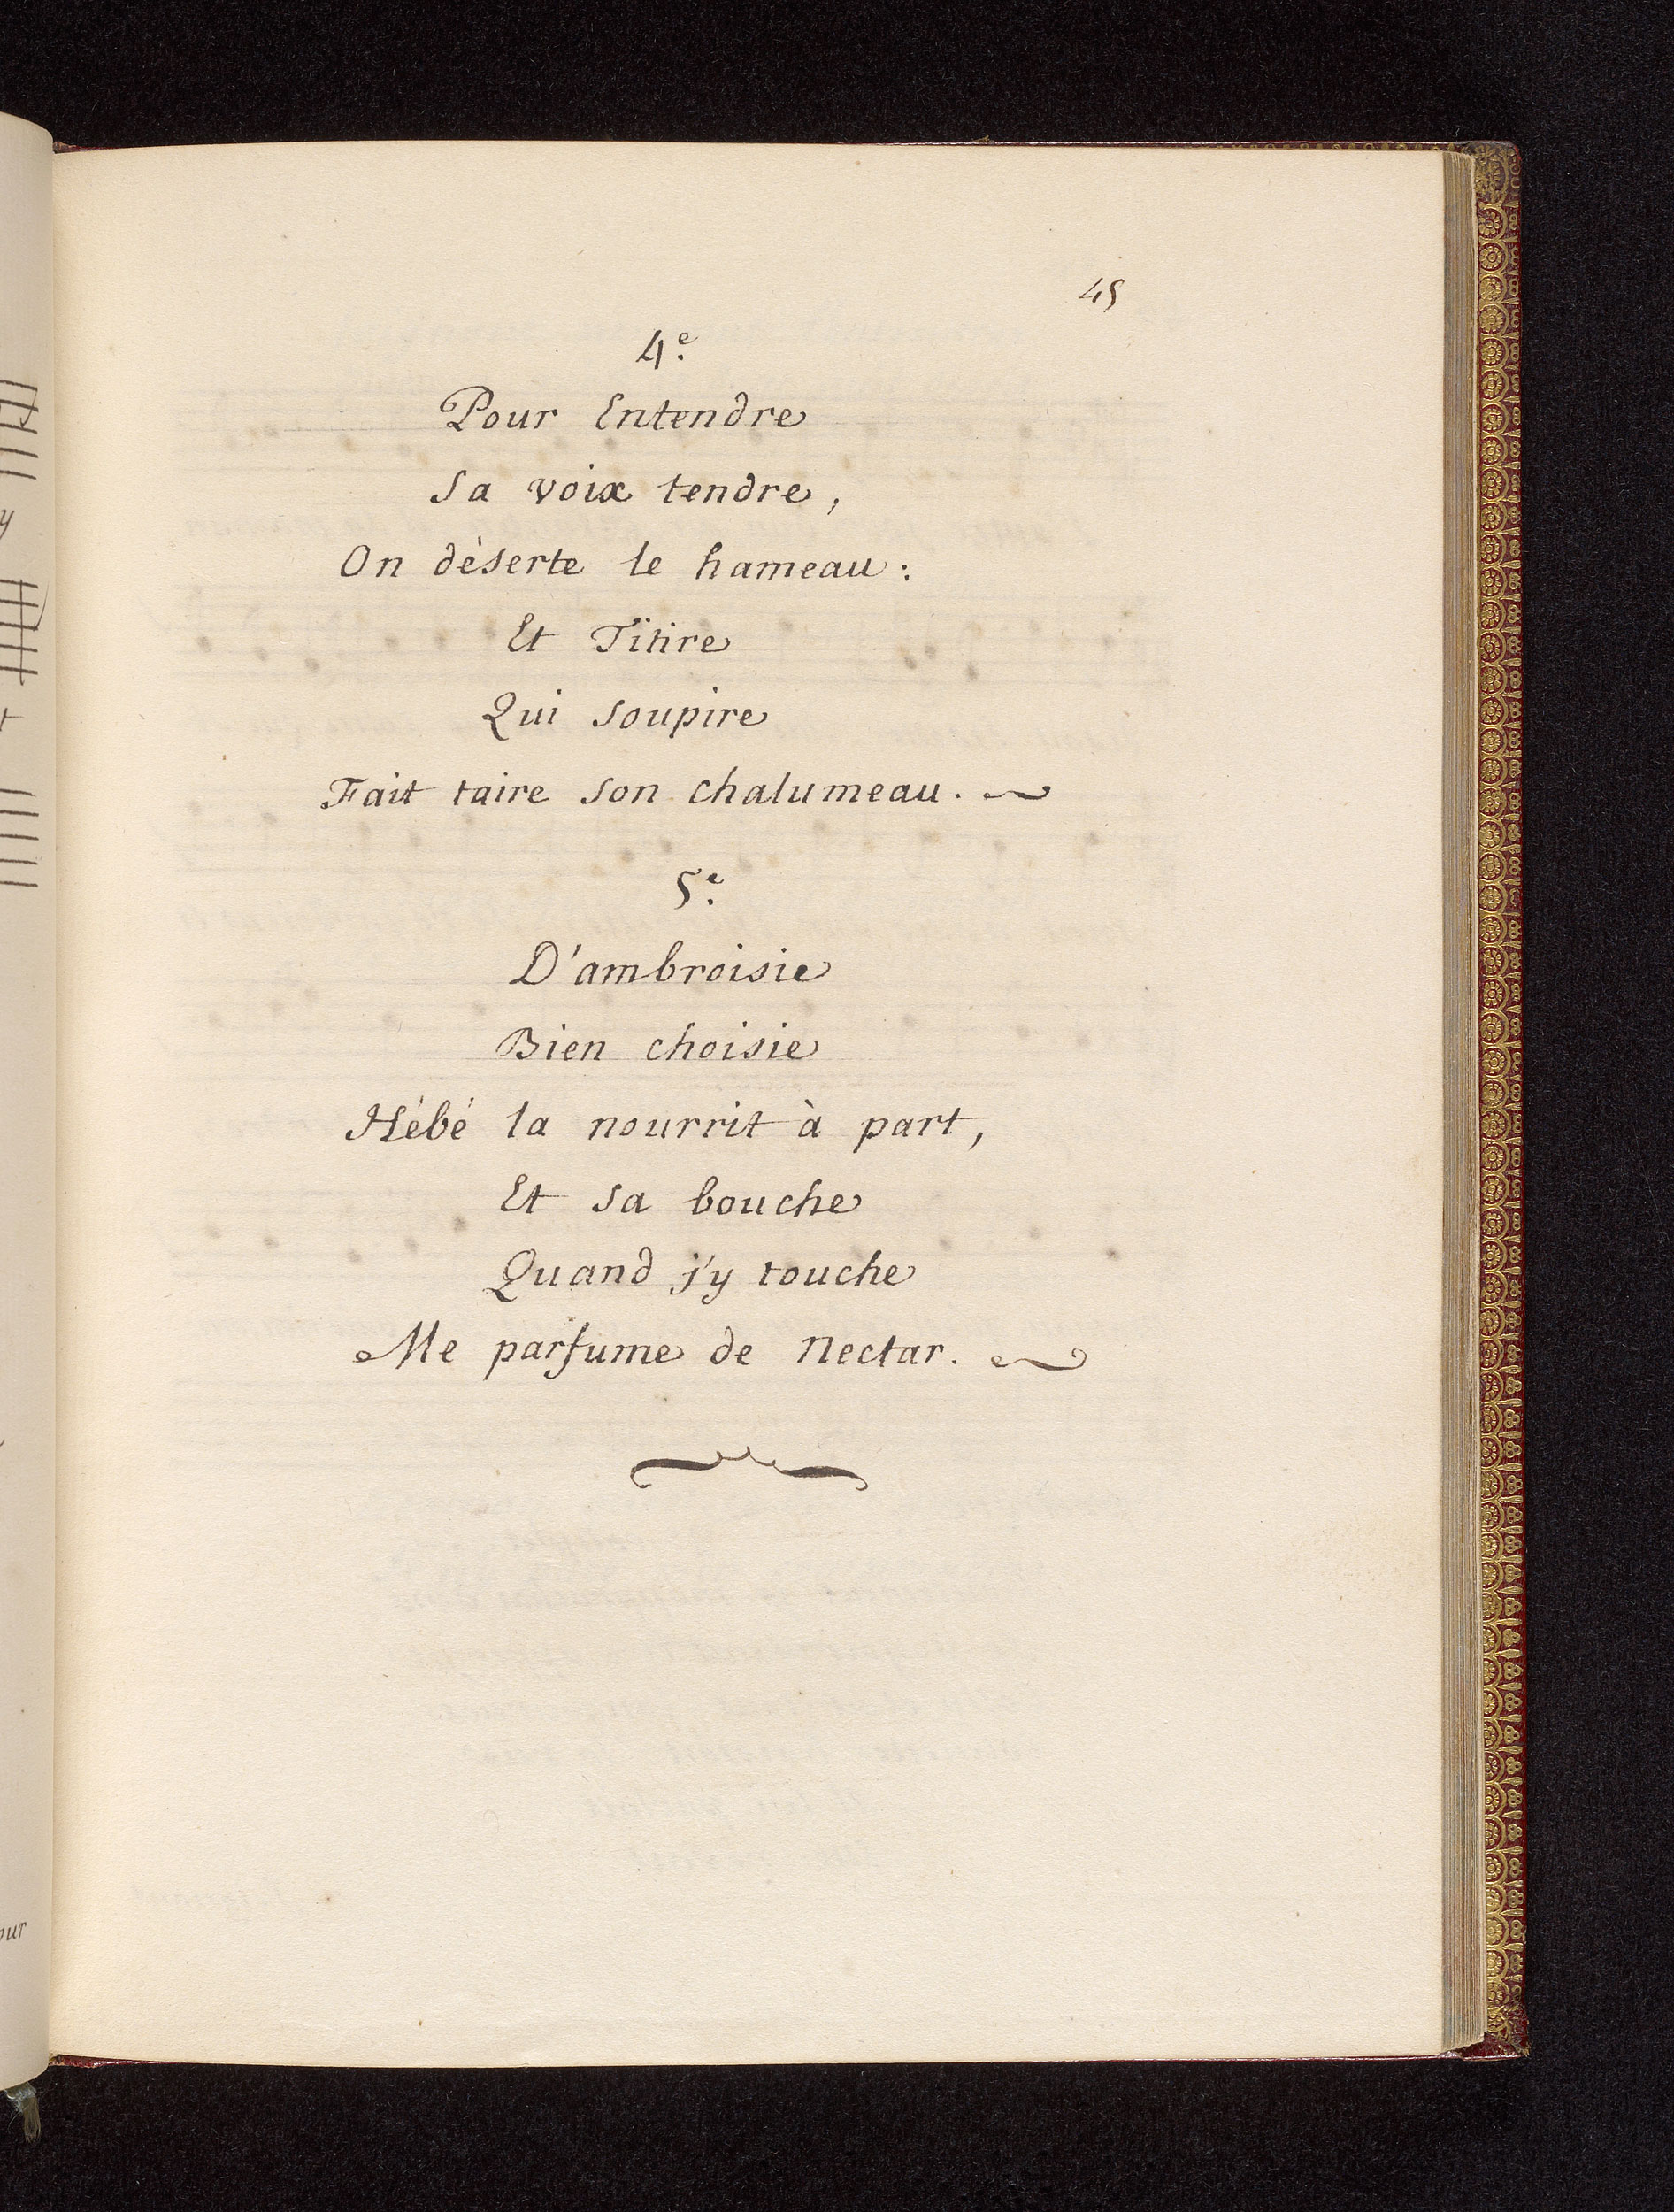 45
4e.
Pour Entendre
Sa voix tendre,
On dèserte le hameau:
Et Titire
Qui soupire
Fait taire son chalumeau.
5e.
D'ambroisie
Bien choisie
Hébé la nourrit à part,
Et sa bouche
Quand j'y touche
Me parfume de Nectar.